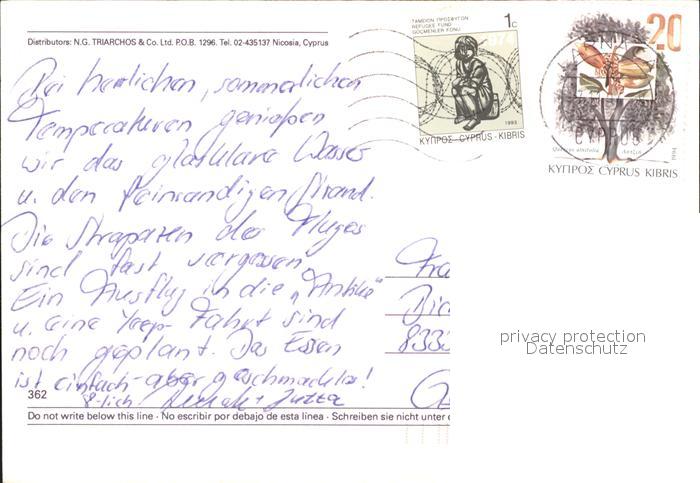 Distributors: N.G. TRIARCHOS & Co. Ltd. P.O.B. 1296. Tel. 02-435137 Nicosia, Cyprus
ΤΑΜΕΙΟΝ ΠΡΟΣΦΥΓΩΝ
REFUGEE FUND
GÖÇMENLER FONU
1c
1974
1993
ΚΥΠΡΟΣ · CYPRUS · KIBRIS
20
CYPRUS
Quercus alnifolia
1994
ΚΥΠΡΟΣ CYPRUS KIBRIS
Bei herrlichen, sommerlichen
Temperaturen genießen
wir das glasklare Wasser
u. den feinsandigen Strand.
Die Strapazen des Fluges
sind fast vergessen.
Ein Ausflug in die „Antike"
u. eine Jeep-Fahrt sind
noch geplant. Das Essen
ist einfach aber geschmacklos!
362
Jutta
Do not write below this line · No escribir por debajo de esta línea · Schreiben sie nicht unter
Fra
833
privacy protection
Datenschutz